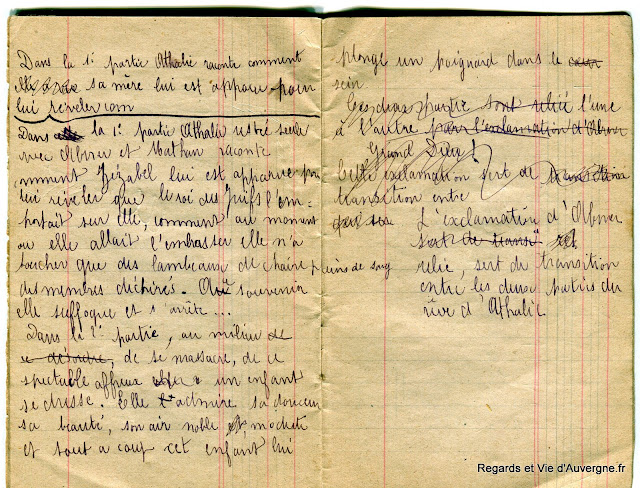 Dans la 1e partie Athalie raconte comment
sa mère lui est apparue pour
lui révéler com
Dans la 1e partie Athalie restée seule
avec Abner et Mathan raconte
comment Jézabel lui est apparue pr
lui révéler que le roi des Juifs l'em-
portait sur elle, comment au moment
ou elle allait l'embrasser elle n'a
toucher que des lambeaux de chair pleins de sang
des membres déchirés. souvenir
elle suffoque et s'arrête...
Dans la 2e partie, au milieu de
ce désordre, de se massacre, de ce
spectacle affreux un enfant
se dresse. Elle admire sa douceur
sa beauté, son air noble et modeste
et tout a coup cet enfant lui
plonge un poignard dans le cœur
sein
Ces deux partie sont reliée l'une
a l'autre par l'exclamation d'Abner
Grand Dieu!
Cette exclamation sert de
transition entre
L'exclamation d'Abner
sert de transit
relie, sert de transition
entre les deux parties du
rêve d'Athalie
Regards et Vie d'Auvergne.fr